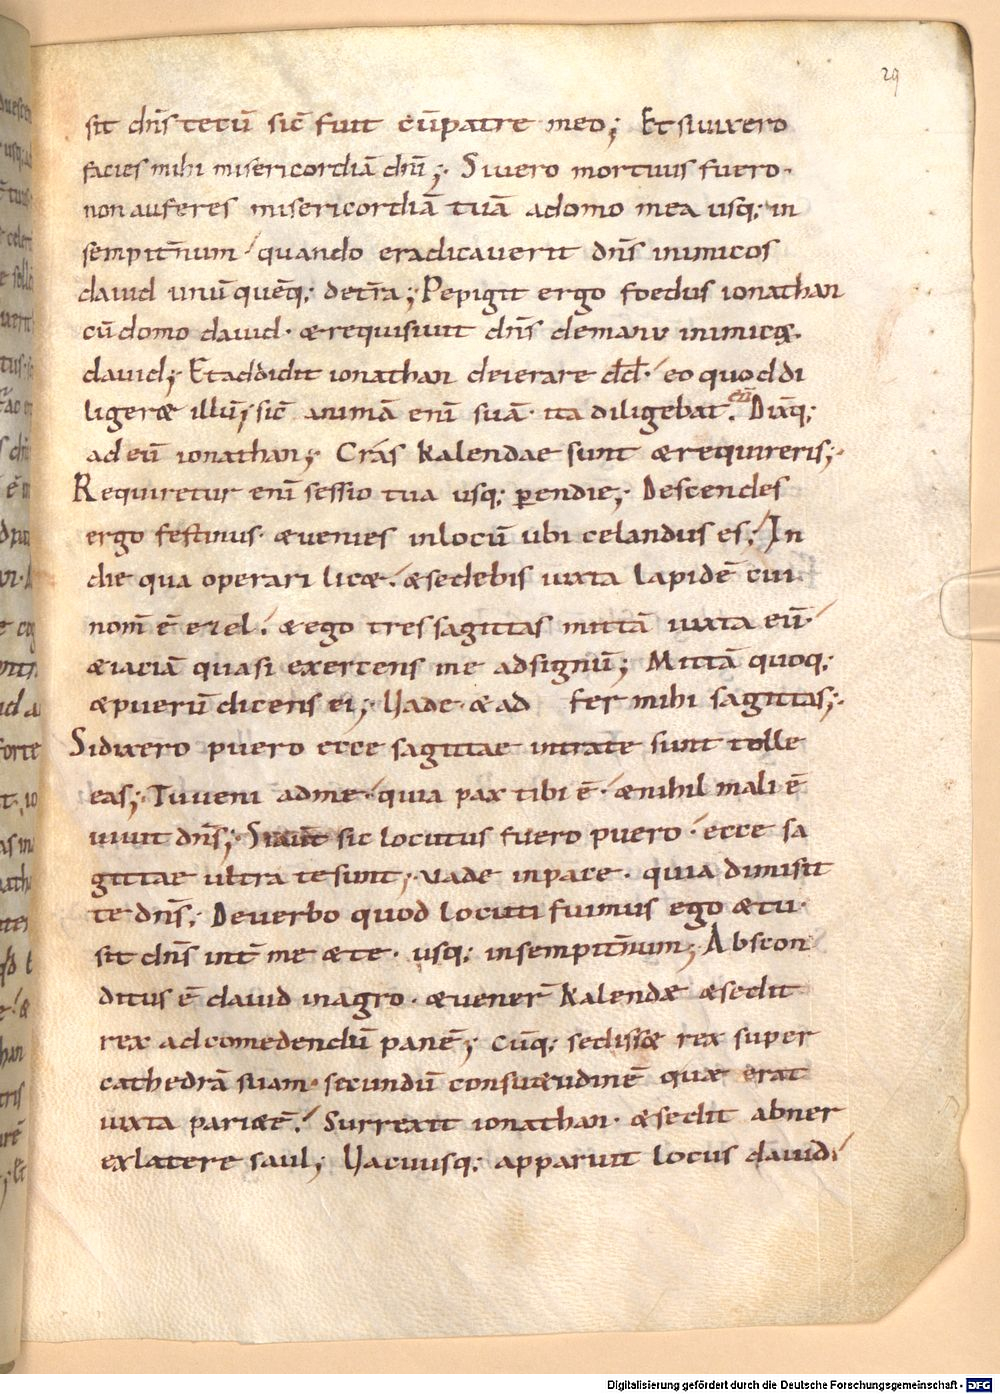 29
sit dn̄s tecū sic̄ fuit cū patre meo; Et si vixero
facies mihi misericordiā dn̄i; Si vero mortuus fuero·
non auferes misericordiā tuā a domo mea usq; in
sempit̄num· quando eradicaverit dn̄s inimicos
david unū quēq; de tr̄a; Pepigit ergo foedus ionathan
cū domo david· & requisivit dn̄s de manu inimicoꝝ
david; Et addidit ionathan deierare dd̄· eo quod di
liger& illū; sic̄ animā enī suā· ita diligebat eū. Dixq;
ad eū ionathan; Cras kalendae sunt & requireris;
Requiretur enī sessio tua usq; ꝑendie; Descendes
ergo festinus· & venies in locū ubi celandus es; In
die qua operari lic&· & sedebis iuxta lapidē cui
nom̄ ē ezel· & ego tres sagittas mittā iuxta eū·
& iaciā quasi exercens me ad signū; Mittā quoq;
& puerū dicens ei; Uade· & ad fer mihi sagittas;
Si dixero puero ecce sagittae intra te sunt tolle
eas; Tu veni ad me· quia pax tibi ē· & nihil mali ē
vivit dn̄s; Si aut̄ sic locutus fuero puero· ecce sa
gittae ultra te sunt; vade in pace· quia dimisit
te dn̄s; De verbo quod locuti fuimus ego & tu·
sit dn̄s int̄ me & te· usq; in sempit̄num; Abscon
ditus ē david in agro· & vener̄ kalendae & sedit
rex ad comedendū panē; Cūq; sediss& rex super
cathedrā suam· secundū consu&udinē quae erat
iuxta pari&ē· Surrexit ionathan· & sedit abner
ex latere saul; Uacuusq; apparuit locus david·
Digitalisierung gefördert durch die Deutsche Forschungsgemeinschaft - DFG